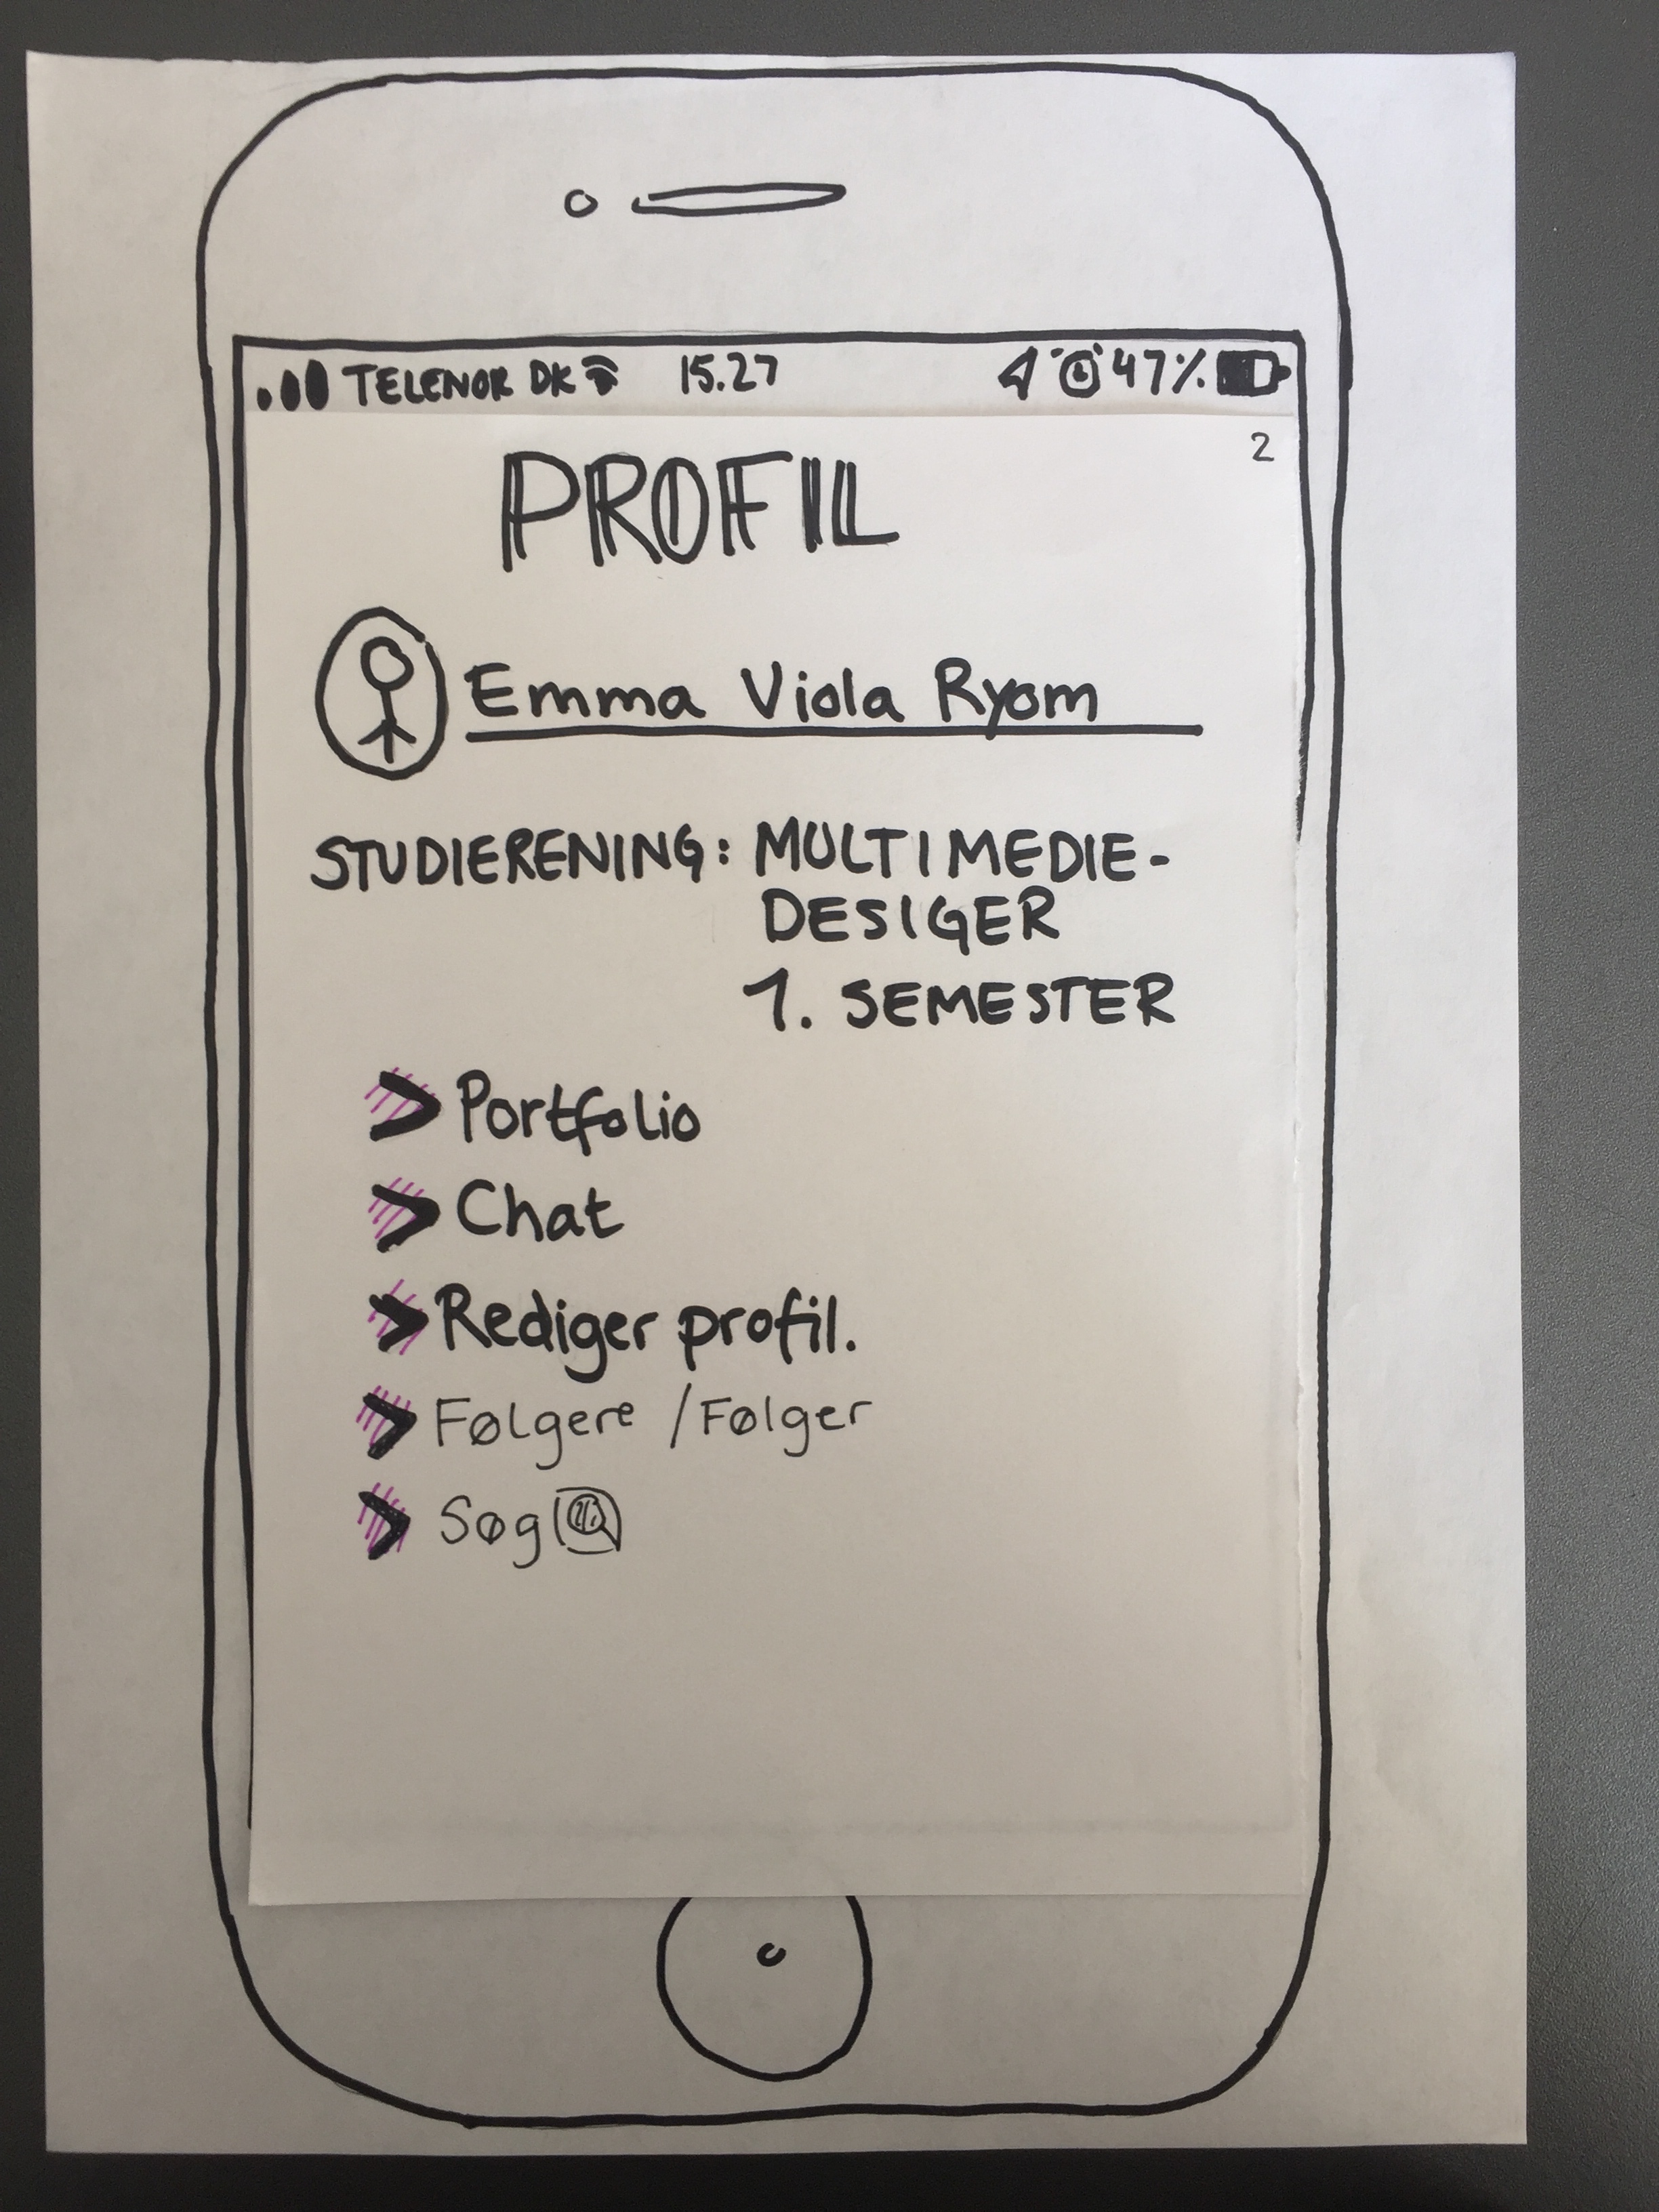 TELENOR DK 15.27 47%
2
PROFIL
Emma Viola Ryom
STUDIERENING: MULTIMEDIE-
DESIGER
1. SEMESTER
> Portfolio
> Chat
> Rediger profil.
> Følgere / Følger
> Søg